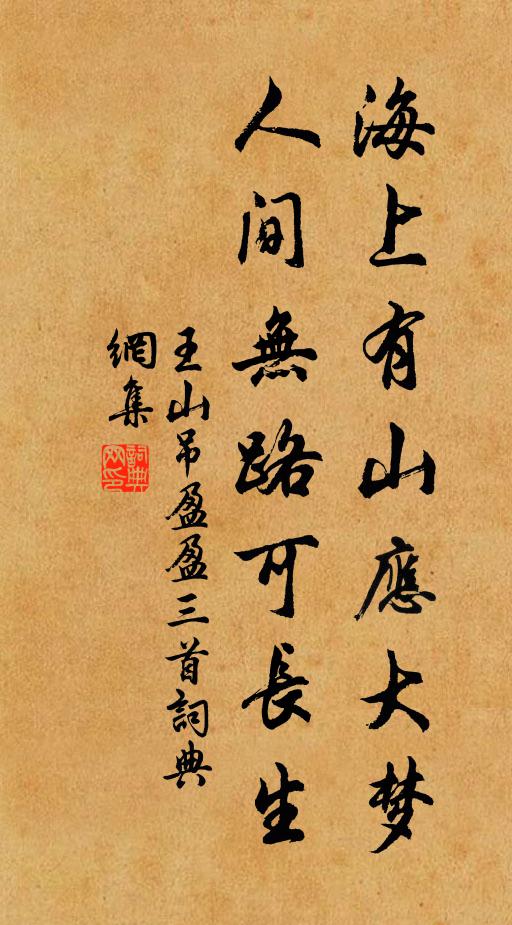 海上有山應大梦
人間無路可長生
王山吊盈盈三首詞典
網集
詞典網印